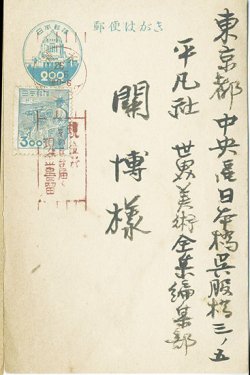 郵便はがき
日本郵便
2.00
3.00
東京都中央区日本橋呉服橋三ノ五
平凡社 世界美術全集編集部
関博様